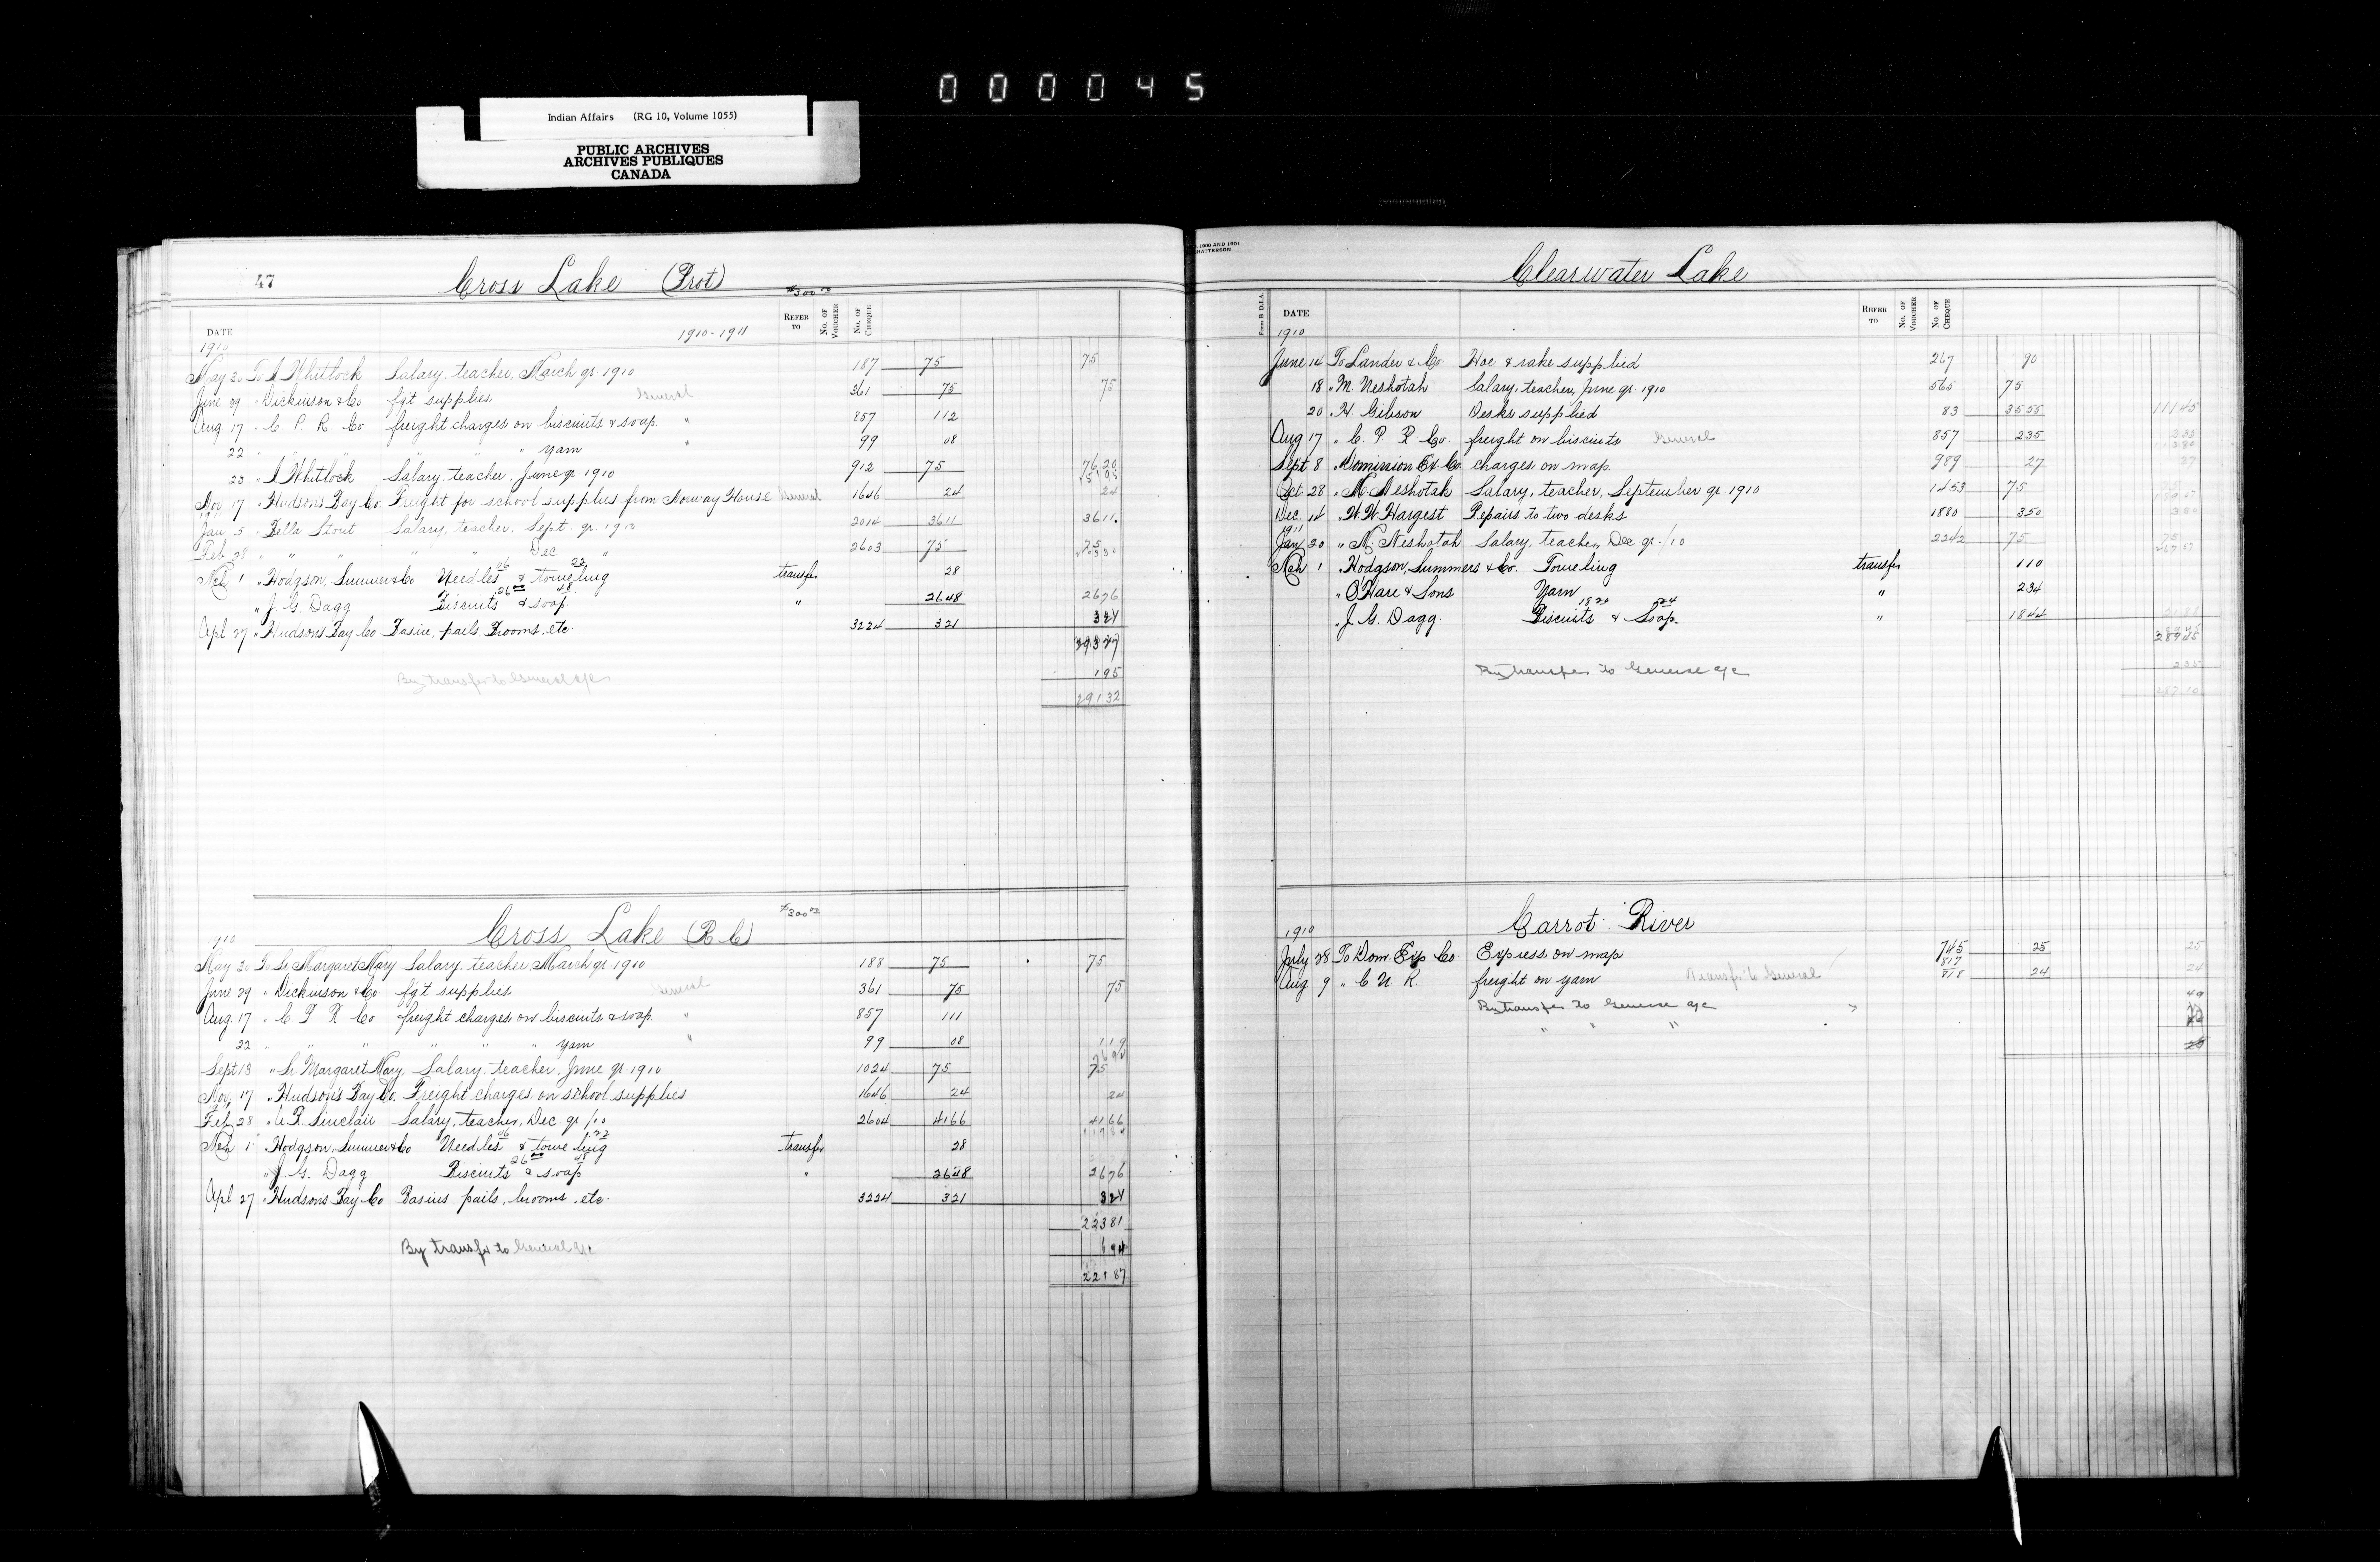 000045
Indian Affairs (RG 10, Volume 1055)
PUBLIC ARCHIVES
ARCHIVES PUBLIQUES
CANADA
47 Cross Lake (Prot) $300.00
DATE 1910-1911 REFER TO No. OF VOUCHER No. OF CHEQUE
1910
May 30 To Whitlock Salary, teacher, March qr 1910 187 75 75
June 29 " Dickinson & Co fgt supplies General 361 75 75
Aug 17 " C P R Co. freight charges on biscuits & soap " 857 112
22 " " " yarn " 99 08
23 " Whitlock Salary, teacher, June qr 1910 912 75 7620
Nov 17 " Hudsons Bay Co. Freight for school supplies from Norway House General 1646 24 24
1911
Jan 5 " Bella Stout Salary, teacher, Sept. qr. 1910 2014 3611 3611
Feb 28 " " " " " Dec " 2603 75 75
Mch 1 " Hodgson, Sumner & Co Needles 06 & toweling 22 transfer 28
" J. G. Dagg Biscuits 26 00 & soap 48 " 2648 2676
Apl 27 " Hudson's Bay Co Basin, pails, Brooms, etc 3224 321 321
By transfer to General a/c 195
29132
Cross Lake (R C) $300.00
1910
May 30 To Sr Margaret Mary Salary, teacher, March qr 1910 188 75 75
June 29 " Dickinson & Co. fgt supplies General 361 75 75
Aug. 17 " C P R Co. freight charges on biscuits & soap " 857 111
22 " " " " " yarn " 99 08 119
Sept 13 " Sr Margaret Mary, Salary, teacher, June qr 1910 1024 75 75
Nov. 17 " Hudson's Bay Co. Freight charges on school supplies 1646 24 24
Feb 28 " A R. Sinclair Salary, teacher, Dec qr. /10 2604 4166 4166
Mch 1 " Hodgson, Sumner & Co Needles 06 & toweling 22 transfer 28
" J. G. Dagg. Biscuits 26 00 & soap 48 " 2648 2676
Apl 27 " Hudson's Bay Co Basins, pails, brooms, etc. 3224 321 321
22381
By transfer to General a/c 194
22187
1900 AND 1901
CHATTERSON
Clearwater Lake
Form B D.I.A. DATE REFER TO No. OF VOUCHER No. OF CHEQUE
1910
June 14 To Lander & Co. Hoe & rake supplied 267 90
18 " M. Neshotah Salary, teacher, June qr 1910 565 75
20 " H. Gibson Desks supplied 83 3555 11145
Aug 17 " C. P R Co. freight on biscuits General 857 235 235
Sept 8 " Dominion Ex Co. charges on map 989 27 27
Oct 28 " M. Neshotah Salary, teacher, September qr. 1910 1453 75
Dec. 14 " W W Hargest Repairs to two desks 1880 350 350
1911
Jan 20 " M. Neshotah Salary, teacher, Dec qr. /10 2242 75 75
Mch 1 " Hodgson, Summers & Co. Toweling transfer 110
" O'Hare & Sons Yarn " 234
" J. G. Dagg. Biscuits & Soap. " 1844 2188
28945
By transfer to General a/c 235
28710
Carrot River
1910
July 28 To Dom. Exp Co. Express on map 745 25 25
Aug 9 " C N R. freight on yarn Transfer to General 817 818 24 24
By transfer to General a/c 49
" " " 24
25